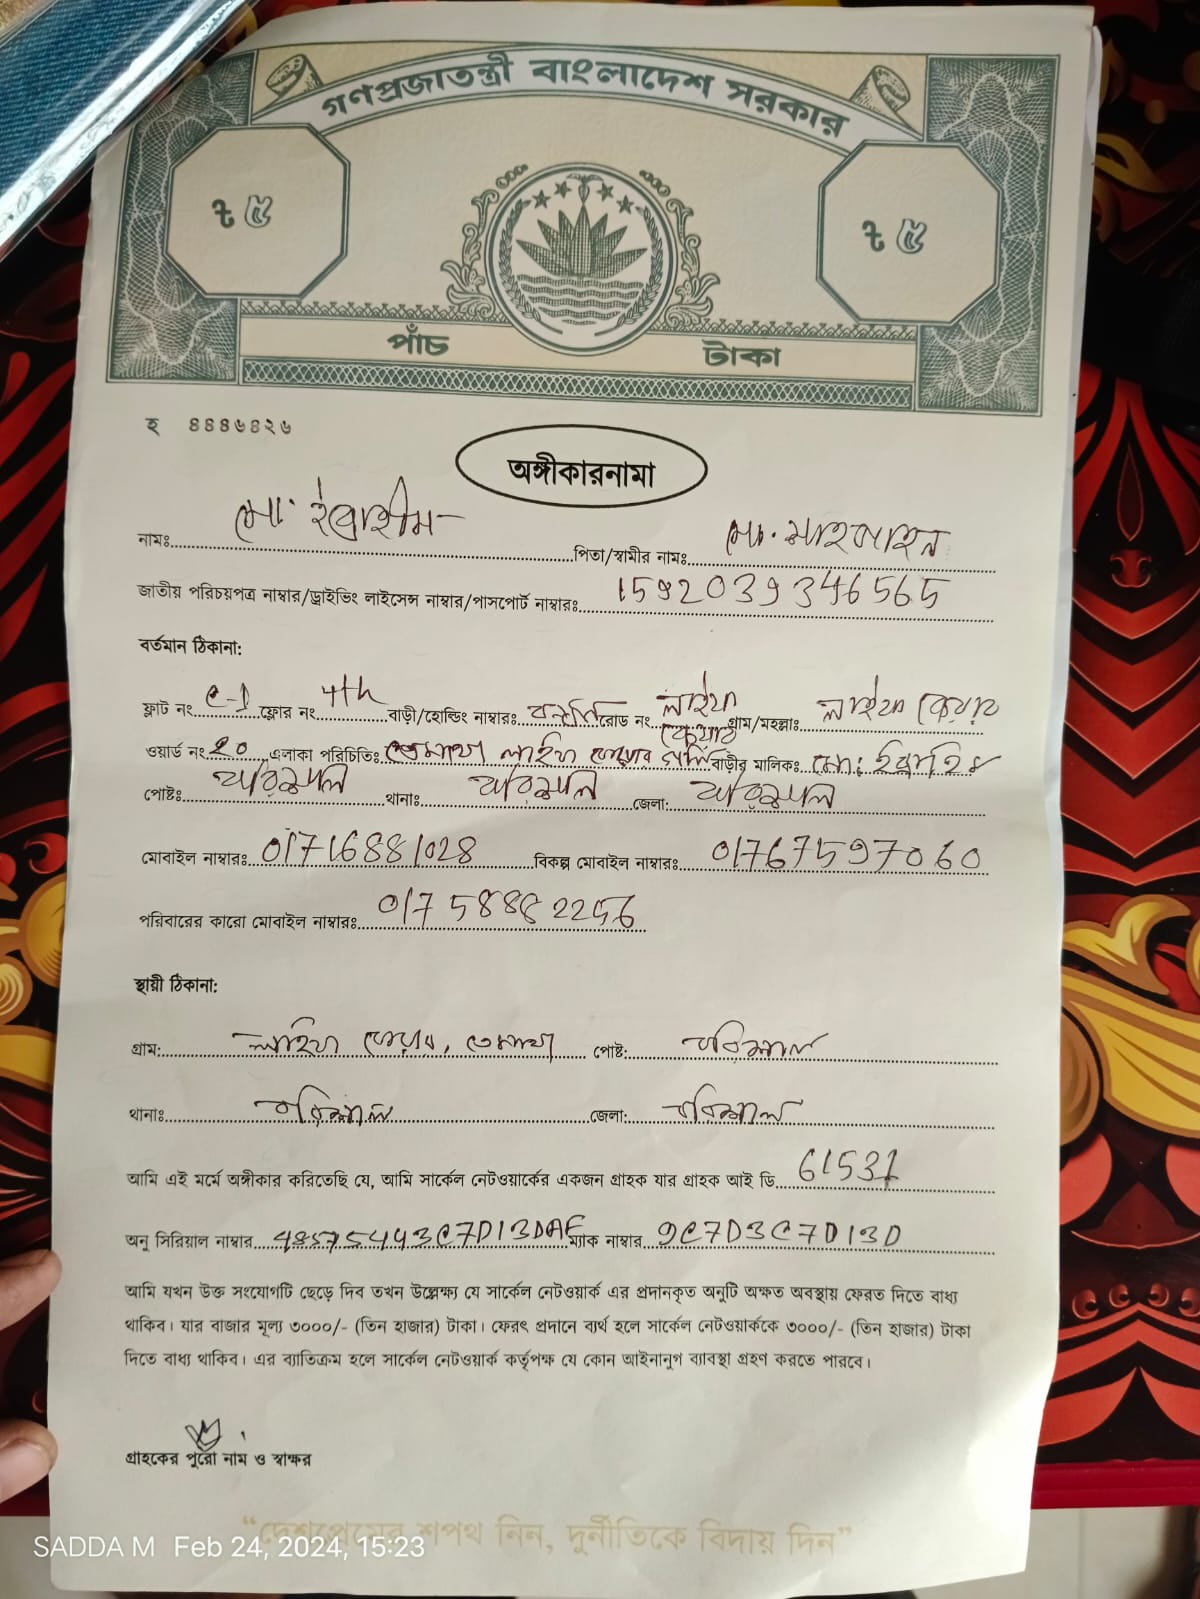 গণপ্রজাতন্ত্রী বাংলাদেশ সরকার
৳ ৫ ৳ ৫
পাঁচ টাকা
হ ৪৪৪৬৪২৬
অঙ্গীকারনামা
নামঃ মো: ইব্রাহীম পিতা/স্বামীর নামঃ মো. শাহজাহন
জাতীয় পরিচয়পত্র নাম্বার/ড্রাইভিং লাইসেন্স নাম্বার/পাসপোর্ট নাম্বারঃ 1592039346565
বর্তমান ঠিকানা:
ফ্লাট নং C-1 ফ্লোর নং 4th বাড়ী/হোল্ডিং নাম্বারঃ রোড নং লাইফ কেয়ার গ্রাম/মহল্লাঃ লাইফ কেয়ার
ওয়ার্ড নং ২০ এলাকা পরিচিতিঃ লাইফ কেয়ার গলি বাড়ীর মালিকঃ মো:
পোষ্টঃ বরিশাল থানাঃ বরিশাল জেলা: বরিশাল
মোবাইল নাম্বারঃ 01716881028 বিকল্প মোবাইল নাম্বারঃ 01767597060
পরিবারের কারো মোবাইল নাম্বারঃ
স্থায়ী ঠিকানা:
গ্রাম: লাইফ কেয়ার, পোষ্ট: বরিশাল
থানাঃ বরিশাল জেলা: বরিশাল
আমি এই মর্মে অঙ্গীকার করিতেছি যে, আমি সার্কেল নেটওয়ার্কের একজন গ্রাহক যার গ্রাহক আই ডি 61531
অনু সিরিয়াল নাম্বার 48575443C7D13DAF ম্যাক নাম্বার 9C7D3C7D13D
আমি যখন উক্ত সংযোগটি ছেড়ে দিব তখন উল্লেক্ষ্য যে সার্কেল নেটওয়ার্ক এর প্রদানকৃত অনুটি অক্ষত অবস্থায় ফেরত দিতে বাধ্য
থাকিব। যার বাজার মূল্য ৩০০০/- (তিন হাজার) টাকা। ফেরৎ প্রদানে ব্যর্থ হলে সার্কেল নেটওয়ার্ককে ৩০০০/- (তিন হাজার) টাকা
দিতে বাধ্য থাকিব। এর ব্যাতিক্রম হলে সার্কেল নেটওয়ার্ক কর্তৃপক্ষ যে কোন আইনানুগ ব্যাবস্থা গ্রহণ করতে পারবে।
গ্রাহকের পুরো নাম ও স্বাক্ষর
“দেশপ্রেমের শপথ নিন, দুর্নীতিকে বিদায় দিন”
SADDA M Feb 24, 2024, 15:23